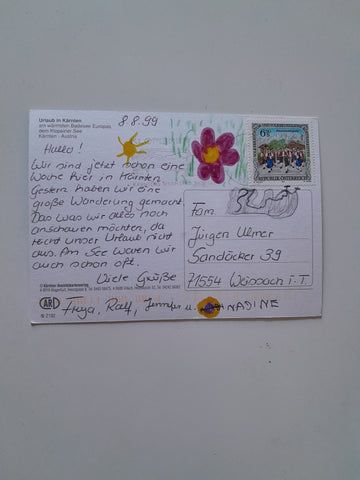 Urlaub in Kärnten
am wärmsten Badesee Europas,
dem Klopeiner See
Kärnten - Austria
8.8.99
Hallo!
Wir sind jetzt schon eine
Woche hier in Kärnten.
Gestern haben wir eine
große Wanderung gemacht.
Das was wir alles noch
anschauen möchten, da
reicht unser Urlaub nicht
aus. Am See waren wir
auch schon oft.
Viele Grüße
Freya, Ralf, Jennifer u. NADINE
REPUBLIK ÖSTERREICH
Fam.
Jürgen Ulmer
Sandäcker 39
71554 Weissach i.T.
© Kärntner Ansichtskartenverlag
ARI
N 2102